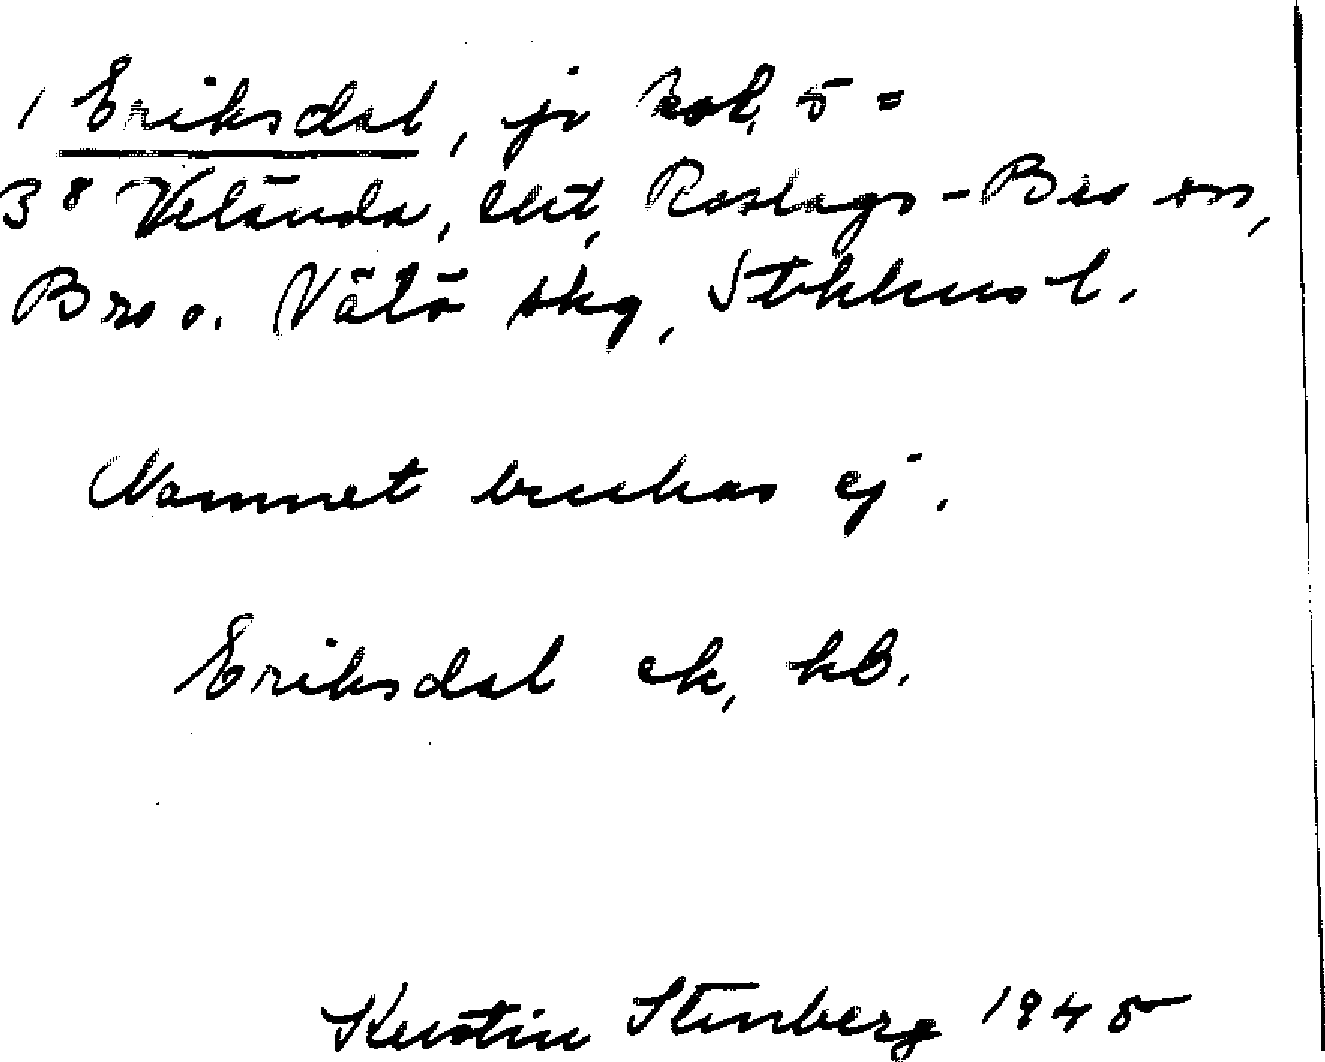 1 Eriksdal, jo kol, 5 =
3⁸ Velända, Roslags-Bro sn,
Bro o. Vätö skg, Sthlms l.
Namnet brukas ej.
Eriksdal ek, kb.
Kerstin Stenberg 1945